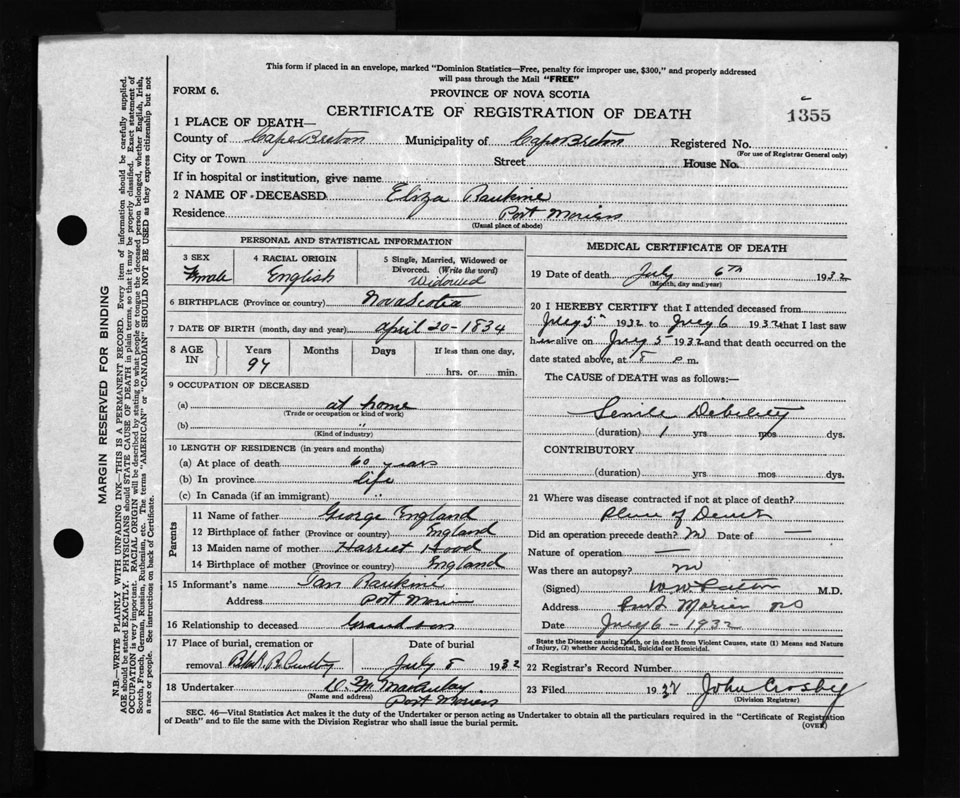 This form if placed in an envelope, marked "Dominion Statistics—Free, penalty for improper use, $300," and properly addressed
will pass through the Mail "FREE"
FORM 6.
PROVINCE OF NOVA SCOTIA
CERTIFICATE OF REGISTRATION OF DEATH
1355
1 PLACE OF DEATH—
County of Cape Breton Municipality of Cape Breton Registered No.
(For use of Registrar General only)
City or Town Street House No.
If in hospital or institution, give name
2 NAME OF DECEASED Eliza Rankine
Residence Port Morien
(Usual place of abode)
PERSONAL AND STATISTICAL INFORMATION
3 SEX Female
4 RACIAL ORIGIN English
5 Single, Married, Widowed or Divorced. (Write the word) Widowed
6 BIRTHPLACE (Province or country) Nova Scotia
7 DATE OF BIRTH (month, day and year) April 20-1834
8 AGE IN Years 97 Months Days If less than one day, hrs. or min.
9 OCCUPATION OF DECEASED
(a) at home
(Trade or occupation or kind of work)
(b) "
(Kind of industry)
10 LENGTH OF RESIDENCE (in years and months)
(a) At place of death 60 years
(b) In province life
(c) In Canada (if an immigrant) "
Parents
11 Name of father George England
12 Birthplace of father (Province or country) England
13 Maiden name of mother Harriet Hood
14 Birthplace of mother (Province or country) England
15 Informant's name Ian Rankine
Address Port Morien
16 Relationship to deceased Grandson
17 Place of burial, cremation or removal
Date of burial July 8 1932
18 Undertaker D. M. MacAulay
(Name and address) Port Morien
MEDICAL CERTIFICATE OF DEATH
19 Date of death July 6th 1932
(Month, day and year)
20 I HEREBY CERTIFY that I attended deceased from
July 5" 1932 to July 6 1932 that I last saw
her alive on July 5 1932 and that death occurred on the
date stated above, at 8 p.m.
The CAUSE of DEATH was as follows:—
Senile Debility
(duration) 1 yrs mos dys.
CONTRIBUTORY
(duration) yrs mos dys.
21 Where was disease contracted if not at place of death?
Place of Death
Did an operation precede death? no Date of —
Nature of operation —
Was there an autopsy? no
(Signed) M.D.
Address Port Morien NS
Date July 6-1932
State the Disease causing Death, or in death from Violent Causes, state (1) Means and Nature
of Injury, (2) whether Accidental, Suicidal or Homicidal.
22 Registrar's Record Number
23 Filed 1932 John Crosby
(Division Registrar)
SEC. 46—Vital Statistics Act makes it the duty of the Undertaker or person acting as Undertaker to obtain all the particulars required in the "Certificate of Registration
of Death" and to file the same with the Division Registrar who shall issue the burial permit.
(OVER)
MARGIN RESERVED FOR BINDING
N.B.—WRITE PLAINLY, WITH UNFADING INK—THIS IS A PERMANENT RECORD. Every item of information should be carefully supplied.
AGE should be stated EXACTLY. PHYSICIANS should STATE CAUSE OF DEATH in plain terms, so that it may be properly classified. Exact statement of
OCCUPATION is very important. RACIAL ORIGIN will be described by stating to what people or tongue the deceased person belonged, whether English, Irish,
Scotch, French, German, Russian, Ruthenian, etc. The terms "AMERICAN" or "CANADIAN" SHOULD NOT BE USED as they express citizenship but not
a race or people. See instructions on back of Certificate.